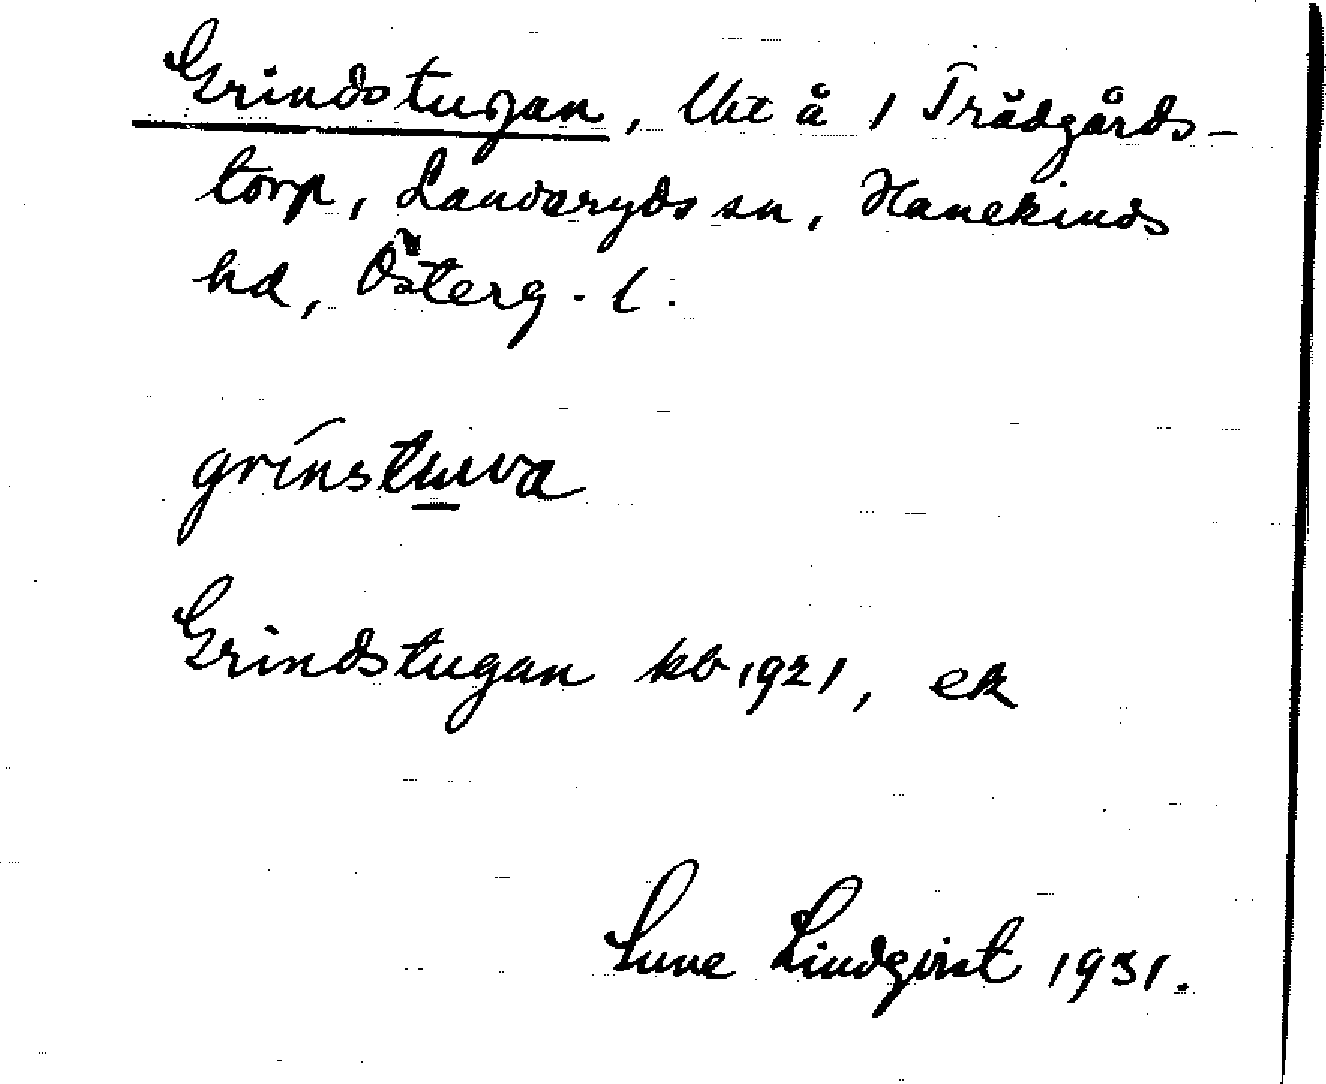 Grindstugan, lht å 1 Trädgårds-
torp, Landeryds sn, Hanekinds
hd, Österg. l.
grínstuva
Grindstugan kb 1921, ek
Sune Lindqvist 1931.